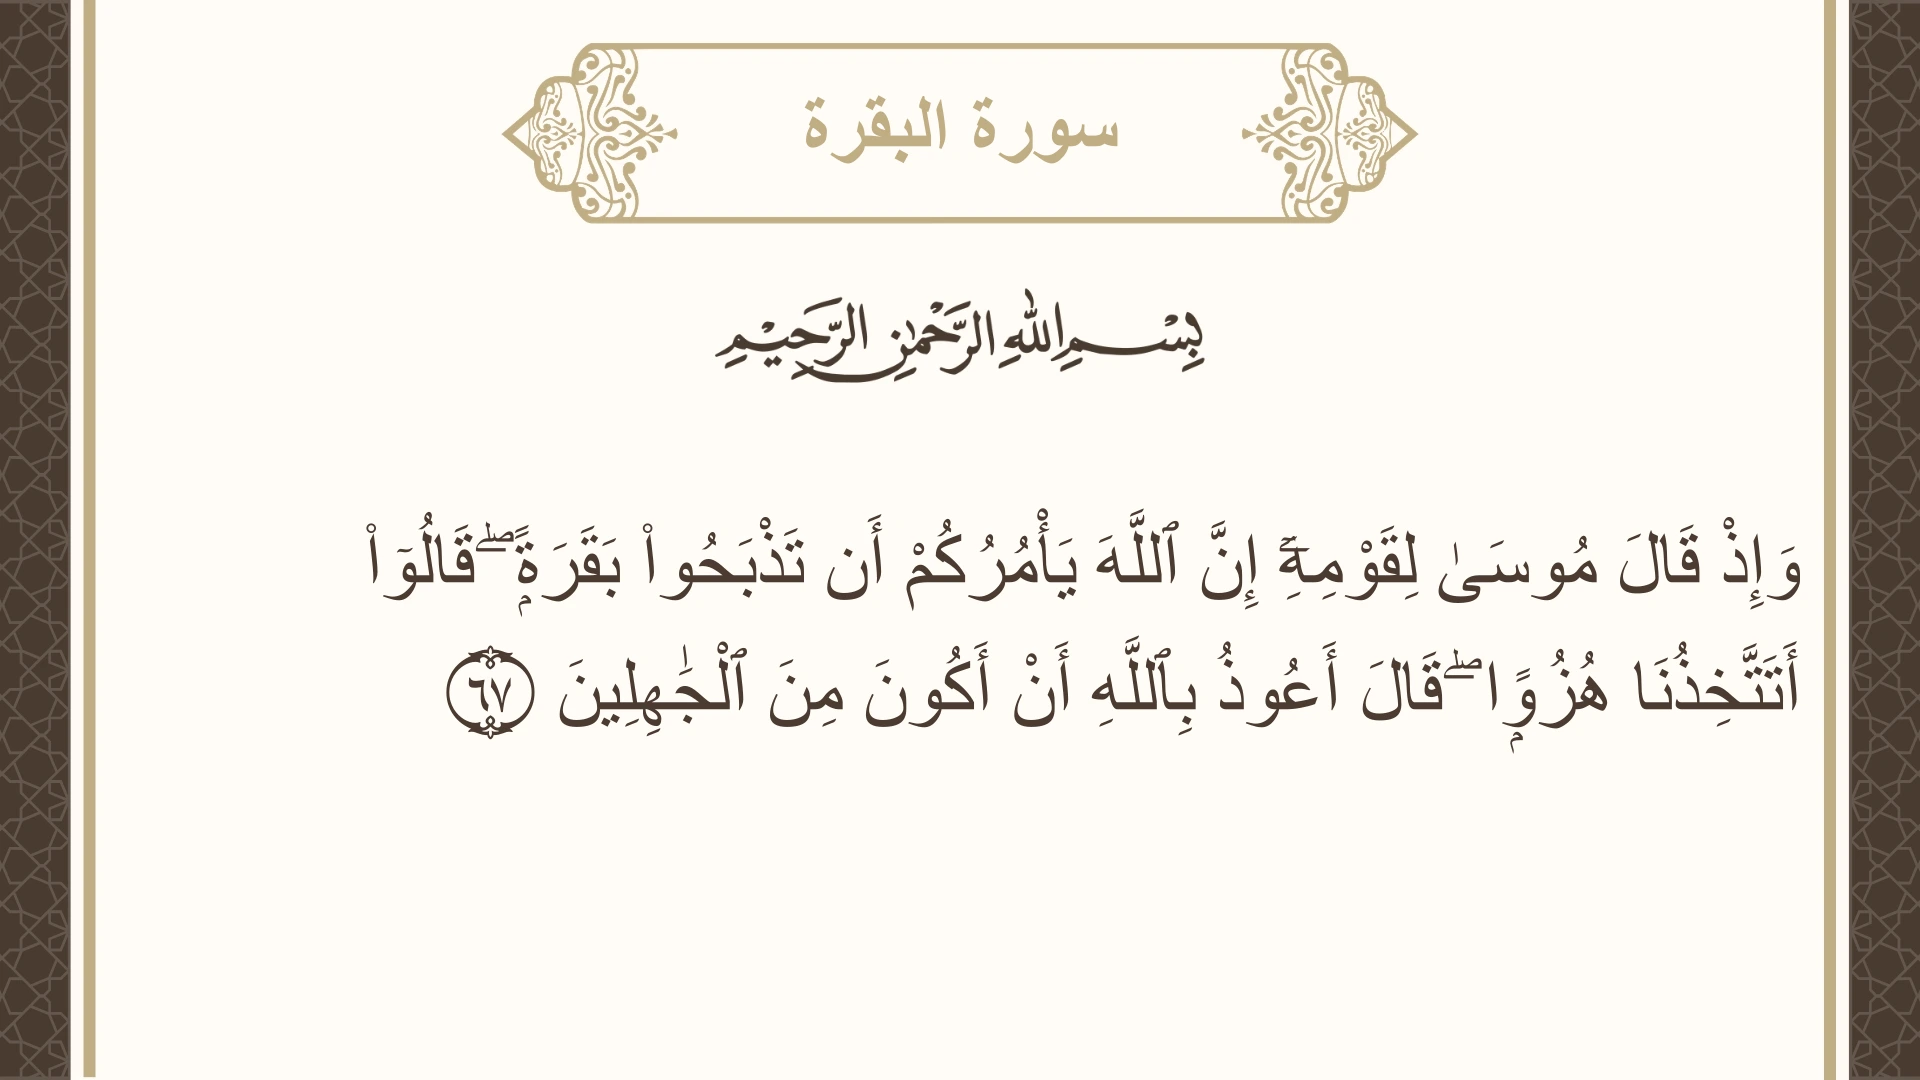 سورة البقرة
بِسْمِ اللهِ الرَّحْمٰنِ الرَّحِيْمِ
وَإِذْ قَالَ مُوسَىٰ لِقَوْمِهِۦٓ إِنَّ ٱللَّهَ يَأْمُرُكُمْ أَن تَذْبَحُوا۟ بَقَرَةًۭ ۖ قَالُوٓا۟
أَتَتَّخِذُنَا هُزُوًۭا ۖ قَالَ أَعُوذُ بِٱللَّهِ أَنْ أَكُونَ مِنَ ٱلْجَـٰهِلِينَ ٦٧